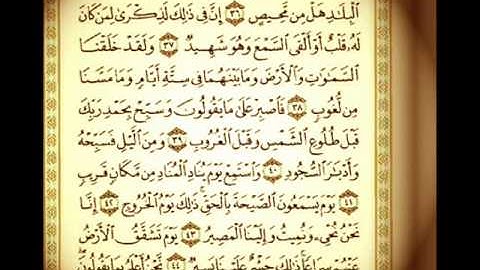 ٱلْبِلَٰدِ هَلْ مِن مَّحِيصٍ ٣٦ إِنَّ فِي ذَٰلِكَ لَذِكْرَىٰ لِمَن كَانَ
لَهُۥ قَلْبٌ أَوْ أَلْقَى ٱلسَّمْعَ وَهُوَ شَهِيدٌ ٣٧ وَلَقَدْ خَلَقْنَا
ٱلسَّمَٰوَٰتِ وَٱلْأَرْضَ وَمَا بَيْنَهُمَا فِي سِتَّةِ أَيَّامٍ وَمَا مَسَّنَا
مِن لُّغُوبٍ ٣٨ فَٱصْبِرْ عَلَىٰ مَا يَقُولُونَ وَسَبِّحْ بِحَمْدِ رَبِّكَ
قَبْلَ طُلُوعِ ٱلشَّمْسِ وَقَبْلَ ٱلْغُرُوبِ ٣٩ وَمِنَ ٱلَّيْلِ فَسَبِّحْهُ
وَأَدْبَٰرَ ٱلسُّجُودِ ٤٠ وَٱسْتَمِعْ يَوْمَ يُنَادِ ٱلْمُنَادِ مِن مَّكَانٍ قَرِيبٍ
٤١ يَوْمَ يَسْمَعُونَ ٱلصَّيْحَةَ بِٱلْحَقِّ ۚ ذَٰلِكَ يَوْمُ ٱلْخُرُوجِ ٤٢ إِنَّا
نَحْنُ نُحْيِۦ وَنُمِيتُ وَإِلَيْنَا ٱلْمَصِيرُ ٤٣ يَوْمَ تَشَقَّقُ ٱلْأَرْضُ
عَنْهُمْ سِرَاعًا ۚ ذَٰلِكَ حَشْرٌ عَلَيْنَا يَسِيرٌ ٤٤ نَّحْنُ أَعْلَمُ بِمَا يَقُولُونَ